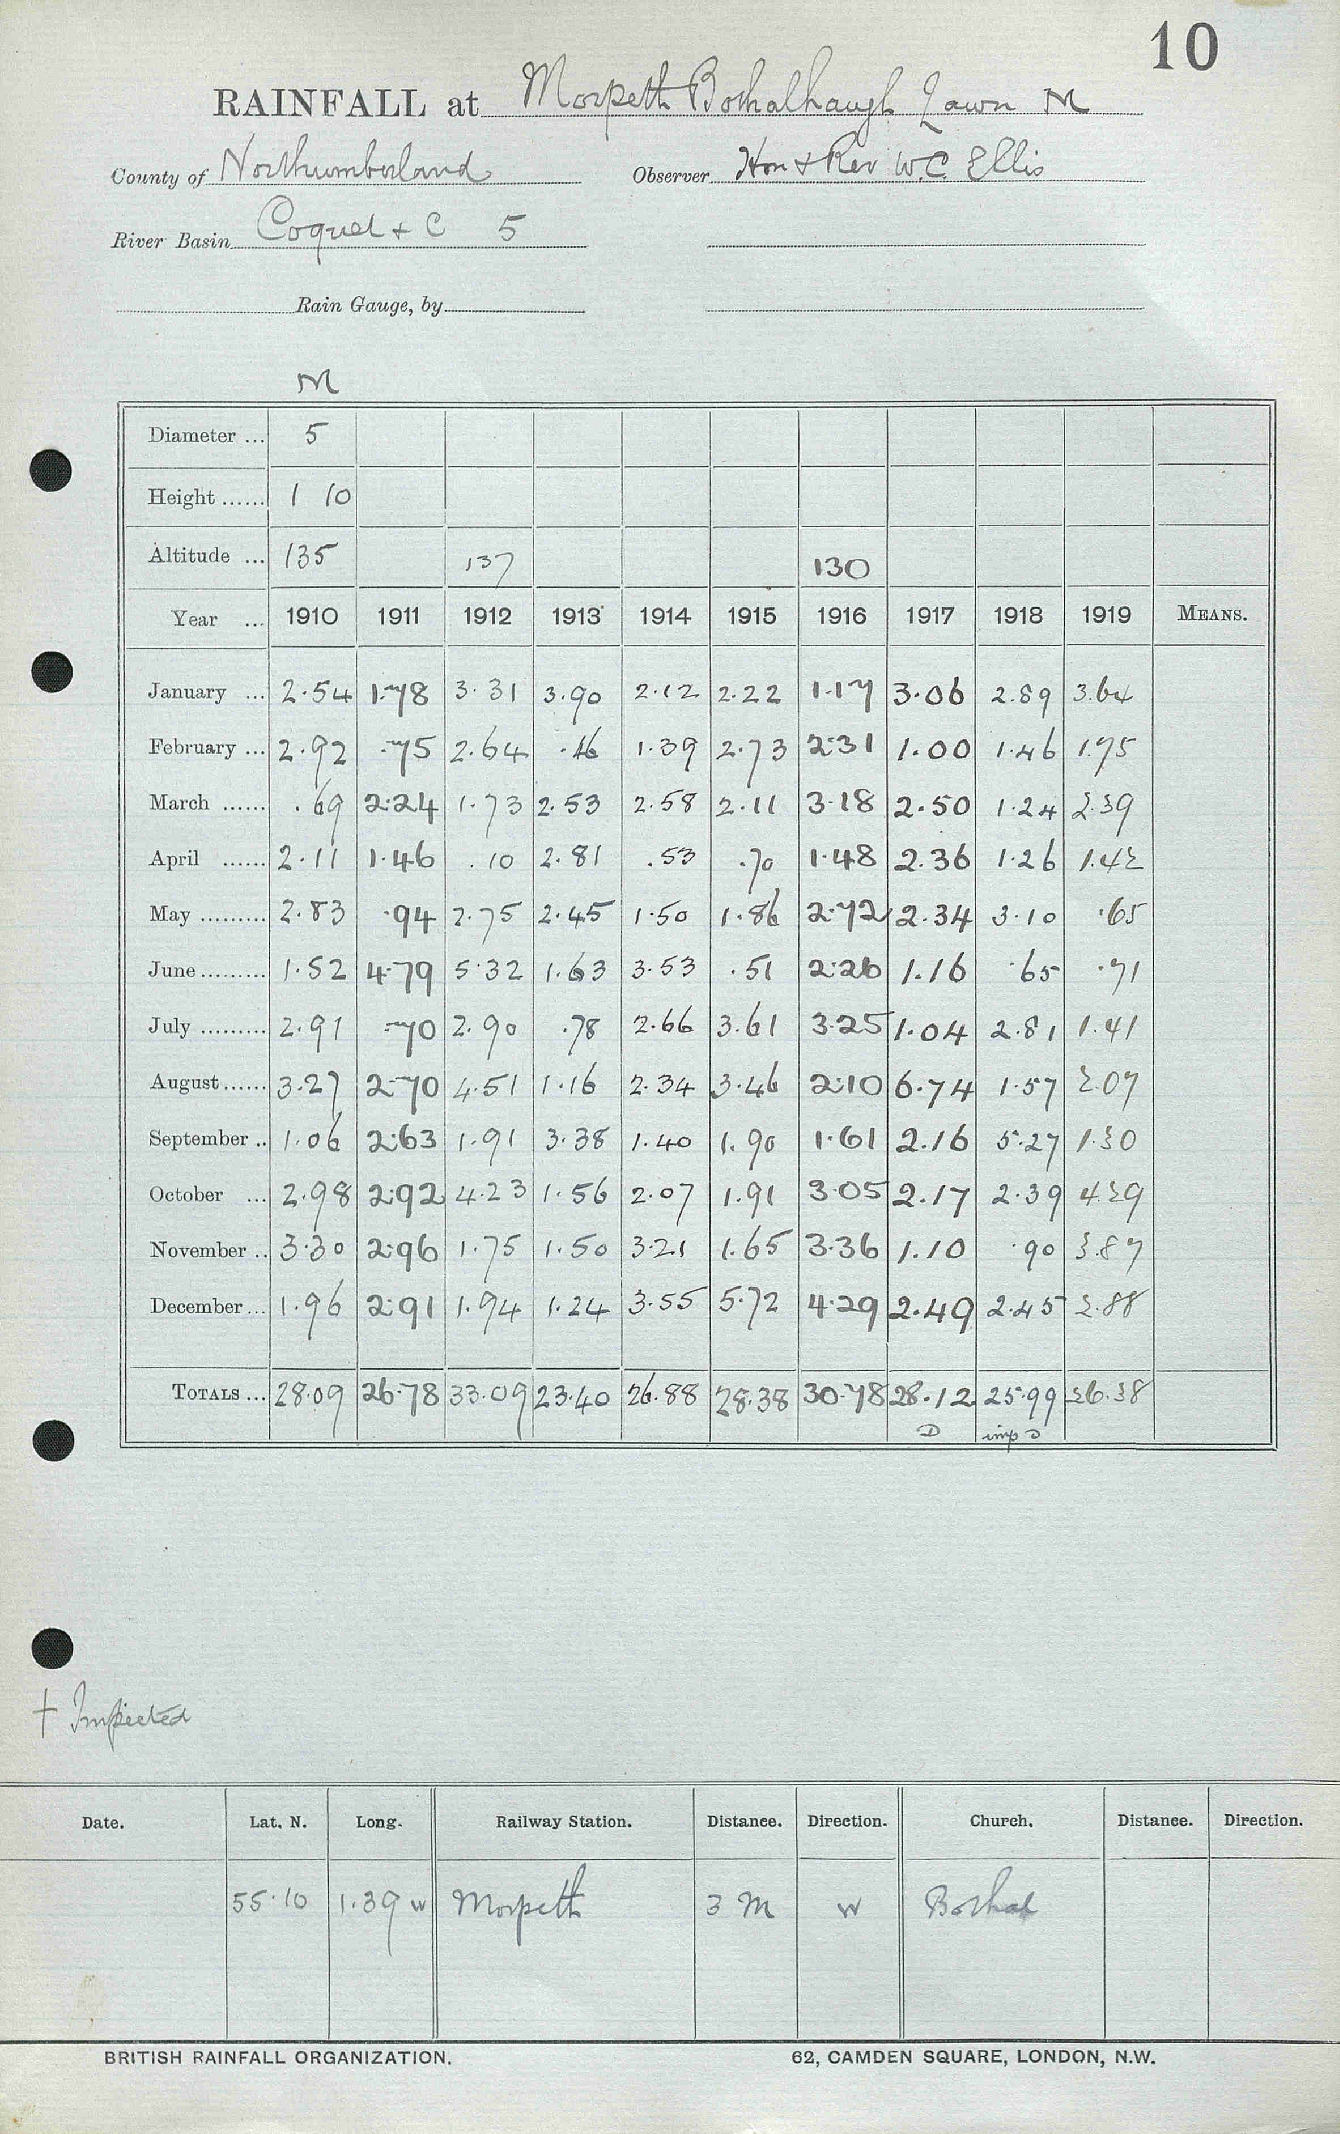 10
RAINFALL at Morpeth Bothalhaugh Lawn M
County of Northumberland Observer Hon & Rev W.C. Ellis
River Basin Coquet & C 5
Rain Gauge, by
M
Diameter ... 5
Height ...... 1 10
Altitude ... 135 137 130
Year ... 1910 1911 1912 1913 1914 1915 1916 1917 1918 1919 MEANS.
January ... 2.54 1.78 3.31 3.90 2.12 2.22 1.17 3.06 2.89 3.64
February ... 2.92 .75 2.64 .46 1.39 2.73 2.31 1.00 1.46 1.75
March ...... .69 2.24 1.73 2.53 2.58 2.11 3.18 2.50 1.24 2.39
April ...... 2.11 1.46 .10 2.81 .53 .70 1.48 2.36 1.26 1.42
May ......... 2.83 .94 2.75 2.45 1.50 1.86 2.72 2.34 3.10 .65
June ......... 1.52 4.79 5.32 1.63 3.53 .51 2.26 1.16 .65 .71
July ......... 2.91 .70 2.90 .78 2.66 3.61 3.25 1.04 2.81 1.41
August ...... 3.27 2.70 4.51 1.16 2.34 3.46 2.10 6.74 1.57 2.07
September .. 1.06 2.63 1.91 3.38 1.40 1.90 1.61 2.16 5.27 1.30
October ... 2.98 2.92 4.23 1.56 2.07 1.91 3.05 2.17 2.39 4.29
November .. 3.30 2.96 1.75 1.50 3.21 1.65 3.36 1.10 .90 3.87
December ... 1.96 2.91 1.94 1.24 3.55 5.72 4.29 2.49 2.45 2.88
TOTALS ... 28.09 26.78 33.09 23.40 26.88 28.38 30.78 28.12 25.99 26.38
D imp D
† Inspected
Date. Lat. N. Long. Railway Station. Distance. Direction. Church. Distance. Direction.
55.10 1.39 W Morpeth 3 M W Bothal
BRITISH RAINFALL ORGANIZATION. 62, CAMDEN SQUARE, LONDON, N.W.